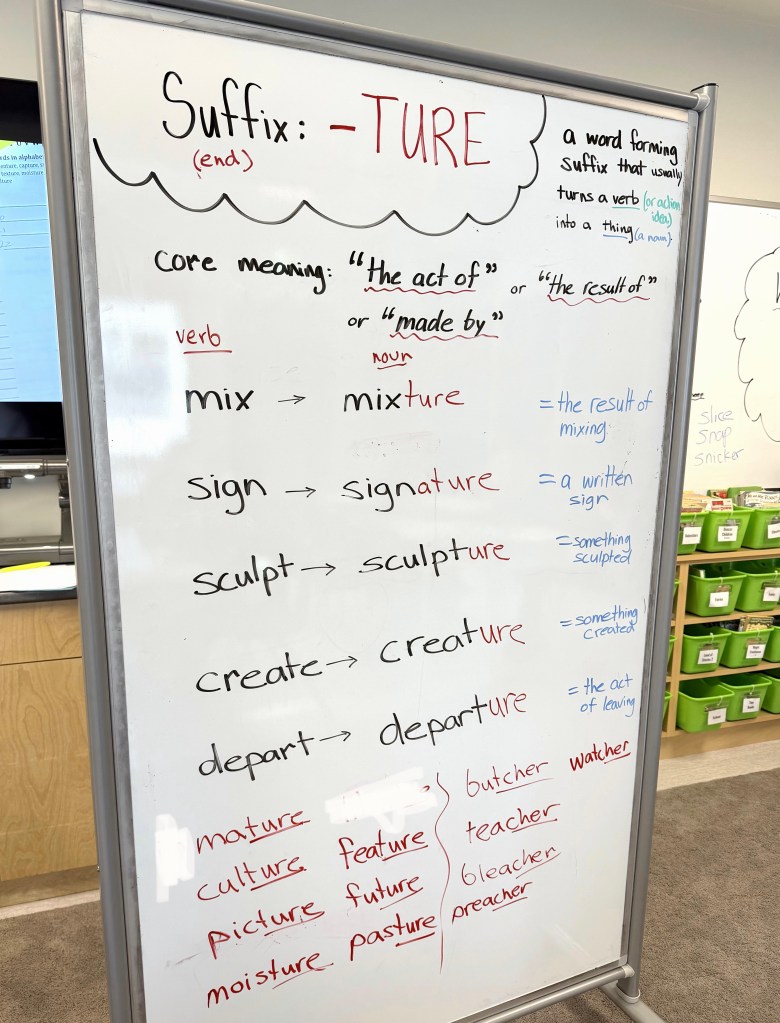 Suffix: -TURE
(end)
a word forming
suffix that usually
turns a verb (or action
idea)
into a thing (a noun).
core meaning: "the act of" or "the result of"
or "made by"
verb
noun
mix → mixture = the result of
mixing
sign → signature = a written
sign
sculpt → sculpture = something
sculpted
create → creature = something
created
depart → departure = the act
of leaving
mature
culture feature
picture future
moisture pasture
butcher watcher
teacher
bleacher
preacher
slice
snap
snicker